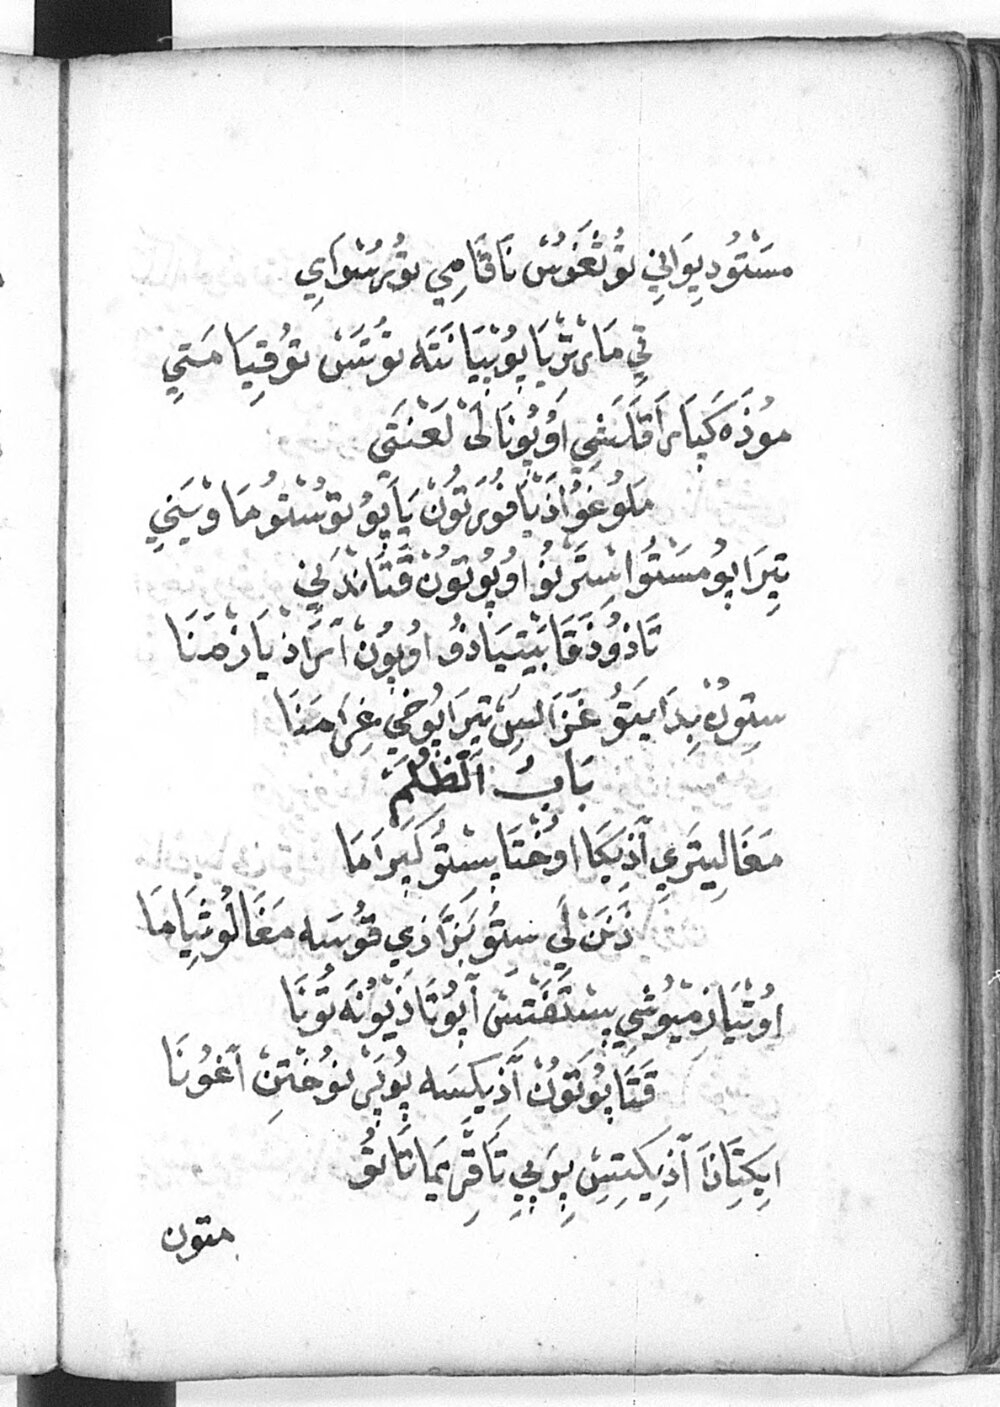 مَسْتُودِيوَانِي تُوثْغُوسْ نَاقَامِي تُوْرُسْوَايِ
تِي مَارْثْيَا پُوپْيَانَتَه تُوتَسْ تُوقِيَامَتِي
مُوذَه كَپْيَارَاقَلَشِي اَوُپُونَالَى لَعْنَتِي
مَلُوغُو اَذْيَافُورَتُونْ يَاپُو تُوسْتُومَا وْيَنِي
تِيرَاپُو مَسْتُو اسْتَرَنُو اوُپُوتُونْ قَتَانْدَنِي
تَاذُوذَقَا بَيْتِيَاذُو اوُپُونْ آرَاذْيَا زْمَنَا
سِتونْ بِدَايَتُو غَزَالِسْ تِيرَاپُوخِي غِرَامَنَا
بَابُ الظُّلْمِ
مَغَالِيتَرِي آذِيكَا اوُخْتَا پِسْتُو كَپِرَامَا
ذَنْ لَي سَتُو بَزَاذِي قُوسَه مَغَالُوثِيَامَا
اوُثْيَازْمِيوُشِي پِسْتَفْتَسْ آپُوتَاذَيْوُنَه تُونَا
قَتَاپُوتُونْ آذِيكِسَه پُوپَرْنُوخْتِنْ آغُونَا
اِيكِتَاذَا آذِيكِيتِسْ پِرَپِي تَاقْرِيمَاتَاتُو
متون